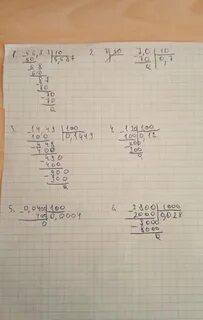 1. 6,87 | 10
60 | 0,687
68
60
87
80
70
70
0
2. 7 | 10 7,0 | 10
70 | 0,7
0
3. 14,49 | 100
100 | 0,1449
449
400
490
400
900
900
0
4. 12 | 100
100 | 0,12
200
200
0
5. 0,0400 | 100
400 | 0,0004
0
6. 2800 | 1000
2000 | 0,028
8000
8000
0